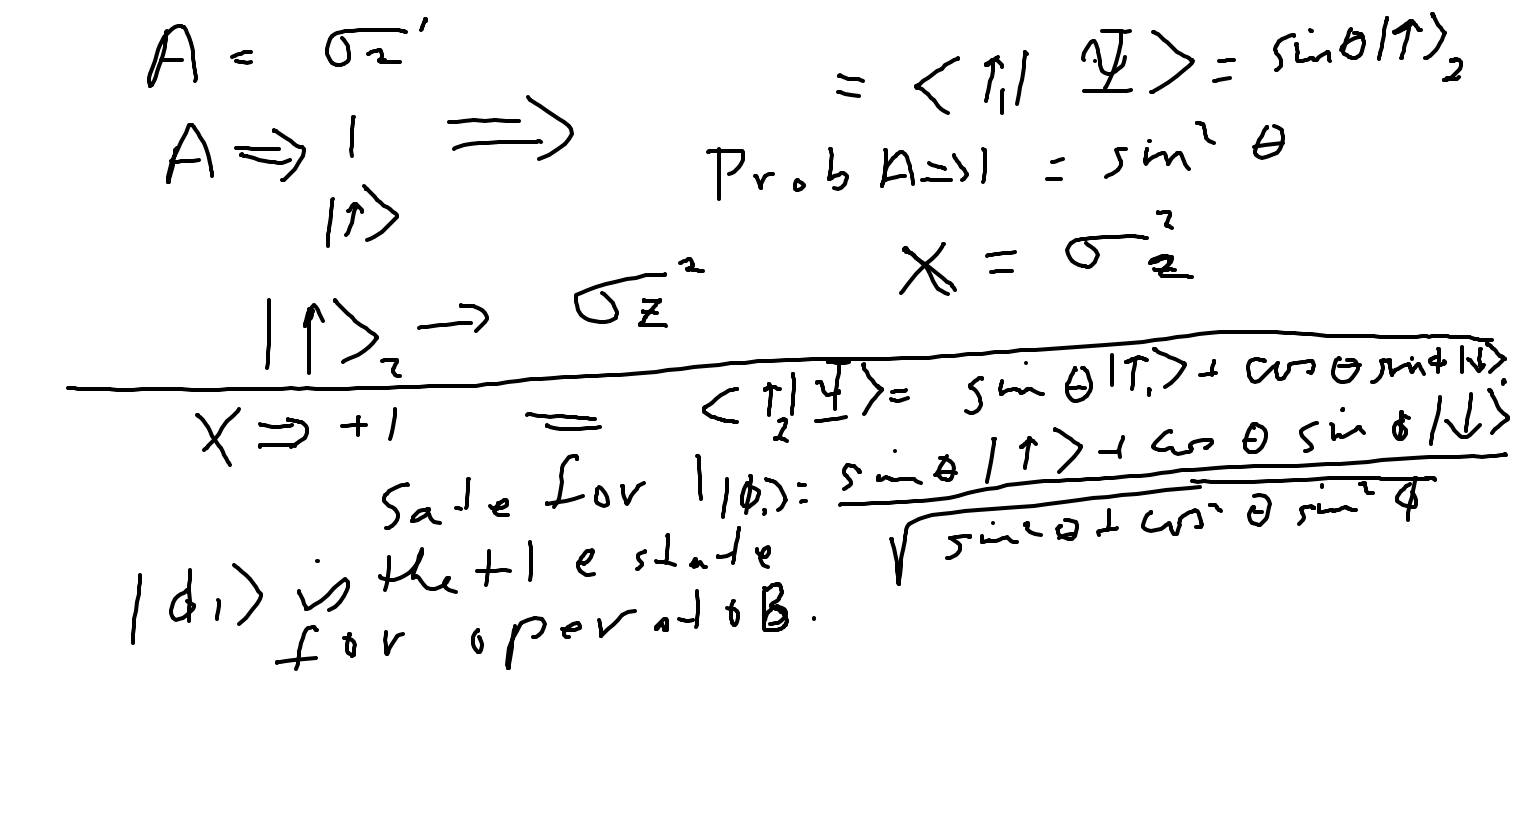 A = σz¹
= <↑₁| Ψ> = sinθ|↑>₂
A ⇒ 1 ⟹
|↑>
Prob A=>1 = sin² θ
X = σz²
|↑>₂ → σz²
X ⇒ +1 = <↑₂|Ψ> = sin θ|↑₁> + cos θ sin ϕ|↓>₁
Sate for 1 |ϕ₁> = sin θ |↑> + cos θ sin ϕ |↓>
√ sin² θ + cos² θ sin² ϕ
|ϕ₁> is the +1 e state
for operato B.